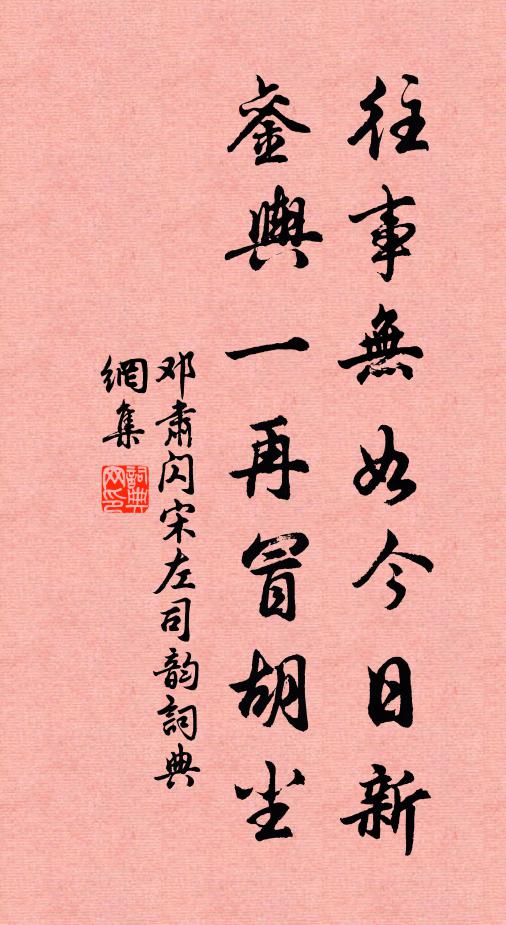 往事無如今日新
銮輿一再冒胡尘
邓肅闪宋左司韵詞典
網集
詞典网印